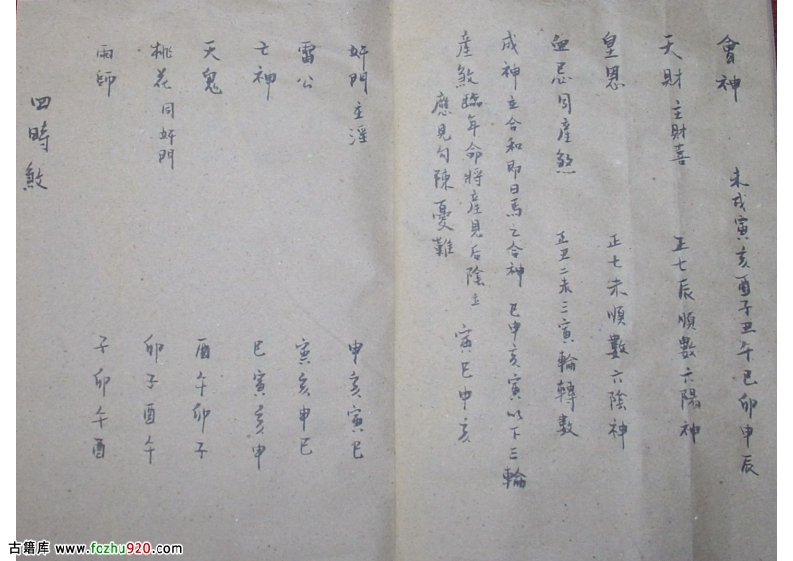 會神 未戌寅亥酉子丑午巳卯申辰
天財主財喜 正七辰順數六陽神
皇恩 正七未順數六陰神
血忌同產煞 正丑二未三寅輪轉數
成神主合和即日馬之合神 巳申亥寅以下三輪
產煞臨年命將產見后陰主 寅巳申亥
應見勾陳憂難
奸門主淫 申亥寅巳
雷公 寅亥申巳
亡神 巳寅亥申
天鬼 酉午卯子
桃花同奸門 卯子酉午
雨師 子卯午酉
四時煞
古籍库 www.fozhu920.com